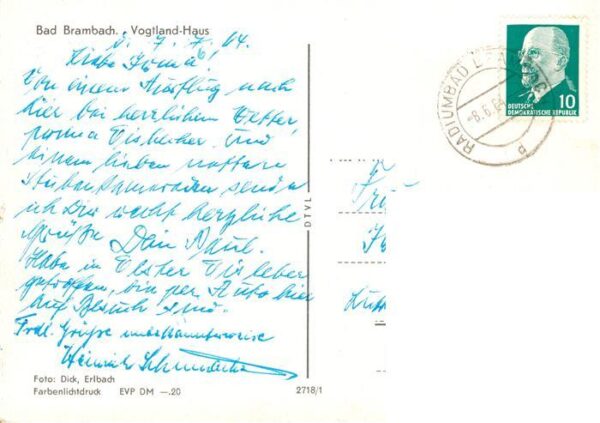 Bad Brambach. Vogtland-Haus
d. 7. 7. 64.
Liebe Irma!
Von einem Ausflug nach
hier bei herrlichem Wetter,
prima Eisbecher und
einem lieben netten
Stubenkameraden sende
ich Dir recht herzliche
Grüße Dein Paul.
Habe in Elster
getroffen, bin per Auto hier
auf Besuch
Frdl. Grüße unbekannterweise
Heinrich
Foto: Dick, Erlbach
Farbenlichtdruck EVP DM —.20
2718/1
DTVL
RADIUMBAD
DEUTSCHE
DEMOKRATISCHE REPUBLIK
10